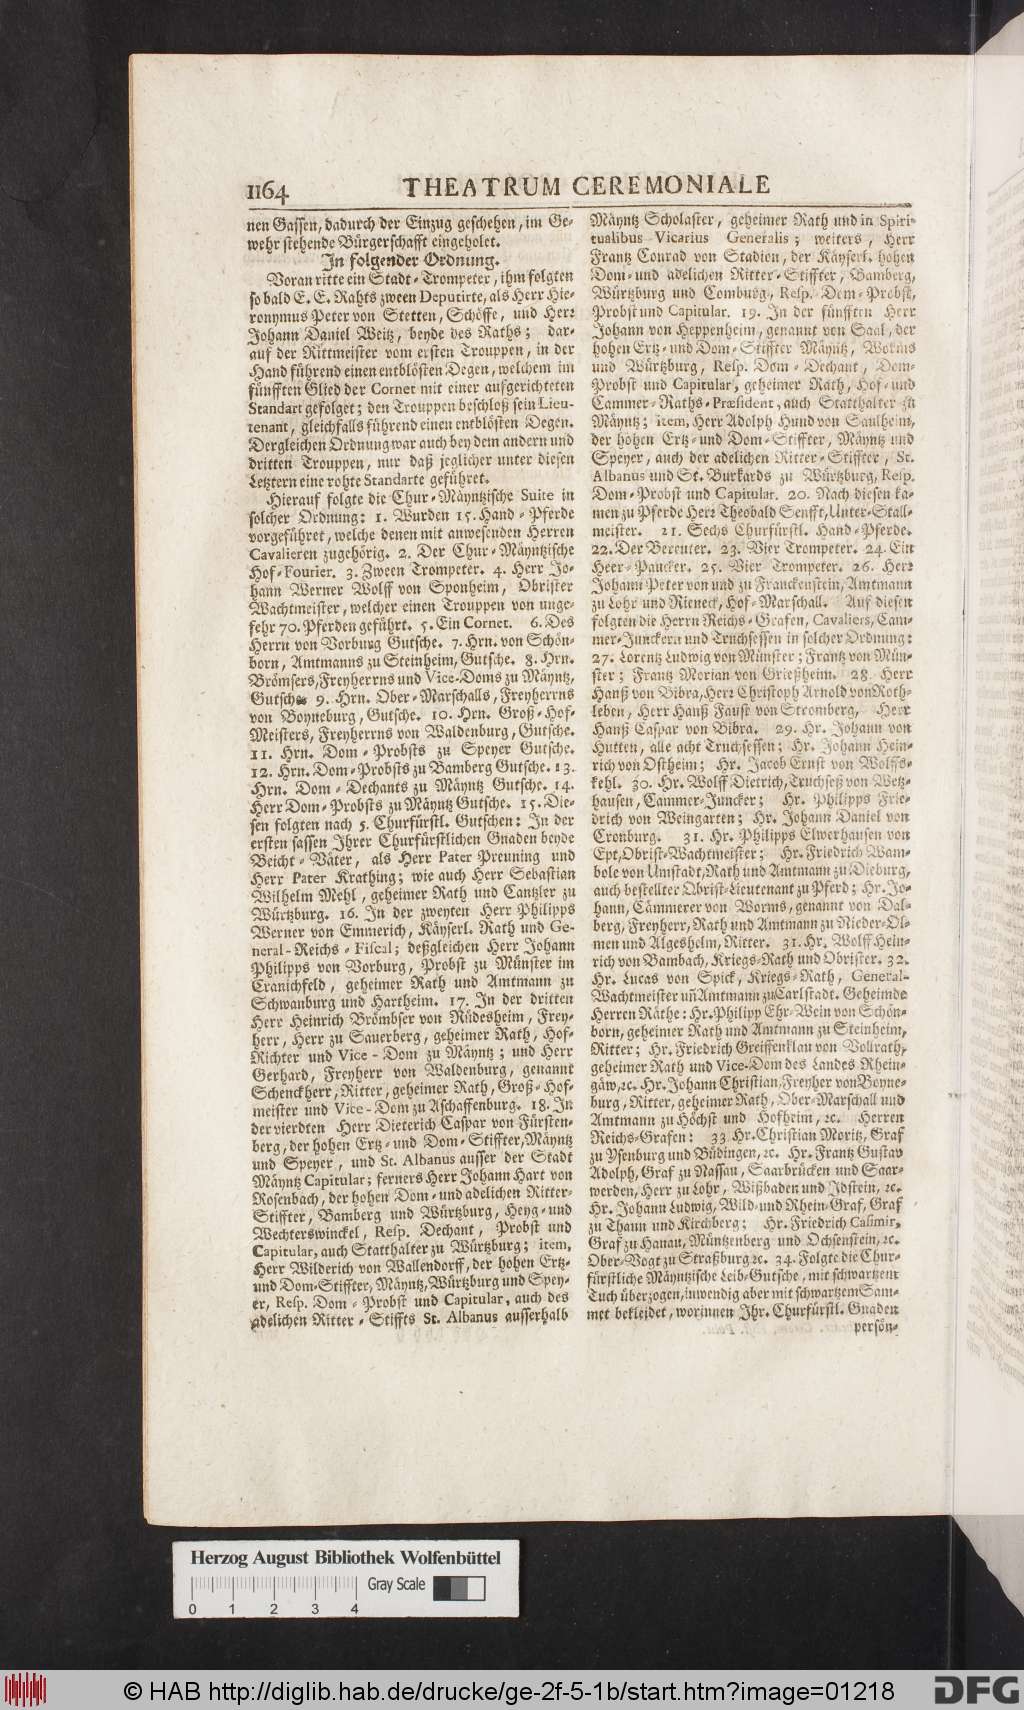 1164 THEATRUM CEREMONIALE
nen Gassen, dadurch der Einzug geschehen, im Ge-
wehr stehende Bürgerschafft eingeholet.
In folgender Ordnung.
Voran ritte ein Stadt-Trompeter, ihm folgten
so bald E. E. Rahts zween Deputirte, als Herr Hie-
ronymus Peter von Stetten, Schöffe, und Herr
Johann Daniel Weitz, beyde des Raths; dar-
auf der Rittmeister vom ersten Trouppen, in der
Hand führend einen entblösten Degen, welchem im
fünfften Glied der Cornet mit einer aufgerichteten
Standart gefolget; den Trouppen beschloß sein Lieu-
tenant, gleichfalls führend einen entblösten Degen.
Dergleichen Ordnung war auch bey dem andern und
dritten Trouppen, nur daß jeglicher unter diesen
Letztern eine rohte Standarte geführet.
Hierauf folgte die Chur-Mäyntzische Suite in
solcher Ordnung: 1. Wurden 15. Hand-Pferde
vorgeführet, welche denen mit anwesenden Herren
Cavalieren zugehörig. 2. Der Chur-Mäyntzische
Hof-Fourier. 3. Zween Trompeter. 4. Herr Jo-
hann Werner Wolff von Sponheim, Obrister
Wachtmeister, welcher einen Trouppen von unge-
fehr 70. Pferden geführt. 5. Ein Cornet. 6. Des
Herrn von Vorburg Gutsche. 7. Hrn. von Schön-
born, Amtmanns zu Steinheim, Gutsche. 8. Hrn.
Brömsers, Freyherrns und Vice-Doms zu Mäyntz,
Gutsche 9. Hrn. Ober-Marschalls, Freyherrns
von Boyneburg, Gutsche. 10. Hrn. Groß-Hof-
Meisters, Freyherrns von Waldenburg, Gutsche.
11. Hrn. Dom-Probsts zu Speyer Gutsche.
12. Hrn. Dom-Probsts zu Bamberg Gutsche. 13.
Hrn. Dom-Dechants zu Mäyntz Gutsche. 14.
Herr Dom-Probsts zu Mäyntz Gutsche. 15. Die-
sen folgten nach 5. Churfürstl. Gutschen: In der
ersten sassen Ihrer Churfürstlichen Gnaden beyde
Beicht-Väter, als Herr Pater Preuning und
Herr Pater Krathing; wie auch Herr Sebastian
Wilhelm Mehl, geheimer Rath und Cantzler zu
Würtzburg. 16. In der zweyten Herr Philipps
Werner von Emmerich, Käyserl. Rath und Ge-
neral-Reichs-Fiscal; deßgleichen Herr Johann
Philipps von Vorburg, Probst zu Münster im
Cranichfeld, geheimer Rath und Amtmann zu
Schwanburg und Hartheim. 17. In der dritten
Herr Heinrich Brömbser von Rüdesheim, Frey-
herr, Herr zu Sauerberg, geheimer Rath, Hof-
Richter und Vice-Dom zu Mäyntz; und Herr
Gerhard, Freyherr von Waldenburg, genannt
Schenckherr, Ritter, geheimer Rath, Groß-Hof-
meister und Vice-Dom zu Aschaffenburg. 18. In
der vierdten Herr Dieterich Caspar von Fürsten-
berg, der hohen Ertz- und Dom-Stiffter, Mäyntz
und Speyer, und St. Albanus ausser der Stadt
Mäyntz Capitular; ferners Herr Johann Hart von
Rosenbach, der hohen Dom- und adelichen Ritter-
Stiffter, Bamberg und Würtzburg, Heyg- und
Wechterswinckel, Resp. Dechant, Probst und
Capitular, auch Statthalter zu Würtzburg; item,
Herr Wilderich von Wallendorff, der hohen Ertz-
und Dom-Stiffter, Mäyntz, Würtzburg und Spey-
er, Resp. Dom-Probst und Capitular, auch des
adelichen Ritter-Stiffts St. Albanus ausserhalb
Mäyntz Scholaster, geheimer Rath und in Spiri-
tualibus Vicarius Generalis; weiters, Herr
Frantz Conrad von Stadion, der Käyserl. hohen
Dom- und adelichen Ritter-Stiffter, Bamberg,
Würtzburg und Combusg, Resp. Dom-Probst,
Probst und Capitular. 19. In der fünfften Herr
Johann von Heppenheim, genannt von Saal, der
hohen Ertz- und Dom-Stiffter Mäyntz, Worms
und Würtzburg, Resp. Dom-Dechant, Dom-
Probst und Capitular, geheimer Rath, Hof- und
Cammer-Raths-Præsident, auch Statthalter zu
Mäyntz; item, Herr Adolph Hund von Saulheim,
der hohen Ertz- und Dom-Stiffter, Mäyntz und
Speyer, auch der adelichen Ritter-Stiffter, St.
Albanus und St. Burkards zu Würtzburg, Resp.
Dom-Probst und Capitular. 20. Nach diesen ka-
men zu Pferde Herr Theobald Senfft, Unter-Stall-
meister. 21. Sechs Churfürstl. Hand-Pferde.
22. Der Bereuter. 23. Vier Trompeter. 24. Ein
Heer-Paucker. 25. Vier Trompeter. 26. Herr
Johann Peter von und zu Franckenstein, Amtmann
zu Lohr und Rieneck, Hof-Marschall. Auf diesen
folgten die Herrn Reichs-Grafen, Cavaliers, Cam-
mer-Junckern und Truchsessen in solcher Ordnung:
27. Lorentz Ludwig von Münster; Frantz von Mün-
ster; Frantz Morian von Grießheim. 28. Herr
Hanß von Bibra, Herr Christoph Arnold von Roth-
leben, Herr Hanß Faust von Stromberg, Herr
Hanß Caspar von Bibra. 29. Hr. Johann von
Hutten, alle acht Truchsessen; Hr. Johann Hein-
rich von Ostheim; Hr. Jacob Ernst von Wolffs-
kehl. 30. Hr. Wolff Dietrich, Truchseß von Wetz-
hausen, Cammer-Juncker; Hr. Philipps Frie-
drich von Weingarten; Hr. Johann Daniel von
Cronburg. 31. Hr. Philipps Elwerhausen von
Ept, Obrist-Wachtmeister; Hr. Friedrich Wam-
bole von Umstadt, Rath und Amtmann zu Dieburg,
auch bestellter Obrist-Lieutenant zu Pferd; Hr. Jo-
hann, Cämmerer von Worms, genannt von Dal-
berg, Freyherr, Rath und Amtmann zu Nieder-Ol-
men und Algeshelm, Ritter. 31. Hr. Wolff Hein-
rich von Bambach, Kriegs-Rath und Obrister. 32.
Hr. Lucas von Spick, Kriegs-Rath, General-
Wachtmeister uñ Amtmann zu Carlstadt. Geheimde
Herren Räthe: Hr. Philipp Ehr-Wein von Schön-
born, geheimer Rath und Amtmann zu Steinheim,
Ritter; Hr. Friedrich Greiffenklau von Vollrath,
geheimer Rath und Vice-Dom des Landes Rhein-
gäw, ꝛc. Hr. Johann Christian, Freyher von Boyne-
burg, Ritter, geheimer Rath, Ober-Marschall und
Amtmann zu Höchst und Hofheim, ꝛc. Herren
Reichs-Grafen: 33. Hr. Christian Moritz, Graf
zu Ysenburg und Büdingen, ꝛc. Hr. Frantz Gustav
Adolph, Graf zu Nassau, Saarbrücken und Saar-
werden, Herr zu Lohr, Wißbaden und Idstein, ꝛc.
Hr. Johann Ludwig, Wild- und Rhein-Graf, Graf
zu Thaun und Kirchberg; Hr. Friedrich Casimir,
Graf zu Hanau, Müntzenberg und Ochsenstein, ꝛc.
Ober-Vogt zu Straßburg ꝛc. 34. Folgte die Chur-
fürstliche Mäyntzische Leib-Gutsche, mit schwartzem
Tuch überzogen, inwendig aber mit schwartzem Sam-
met bekleidet, worinnen Ihr. Churfürstl. Gnaden
persön-
Herzog August Bibliothek Wolfenbüttel
Gray Scale
0 1 2 3 4
© HAB http://diglib.hab.de/drucke/ge-2f-5-1b/start.htm?image=01218
DFG